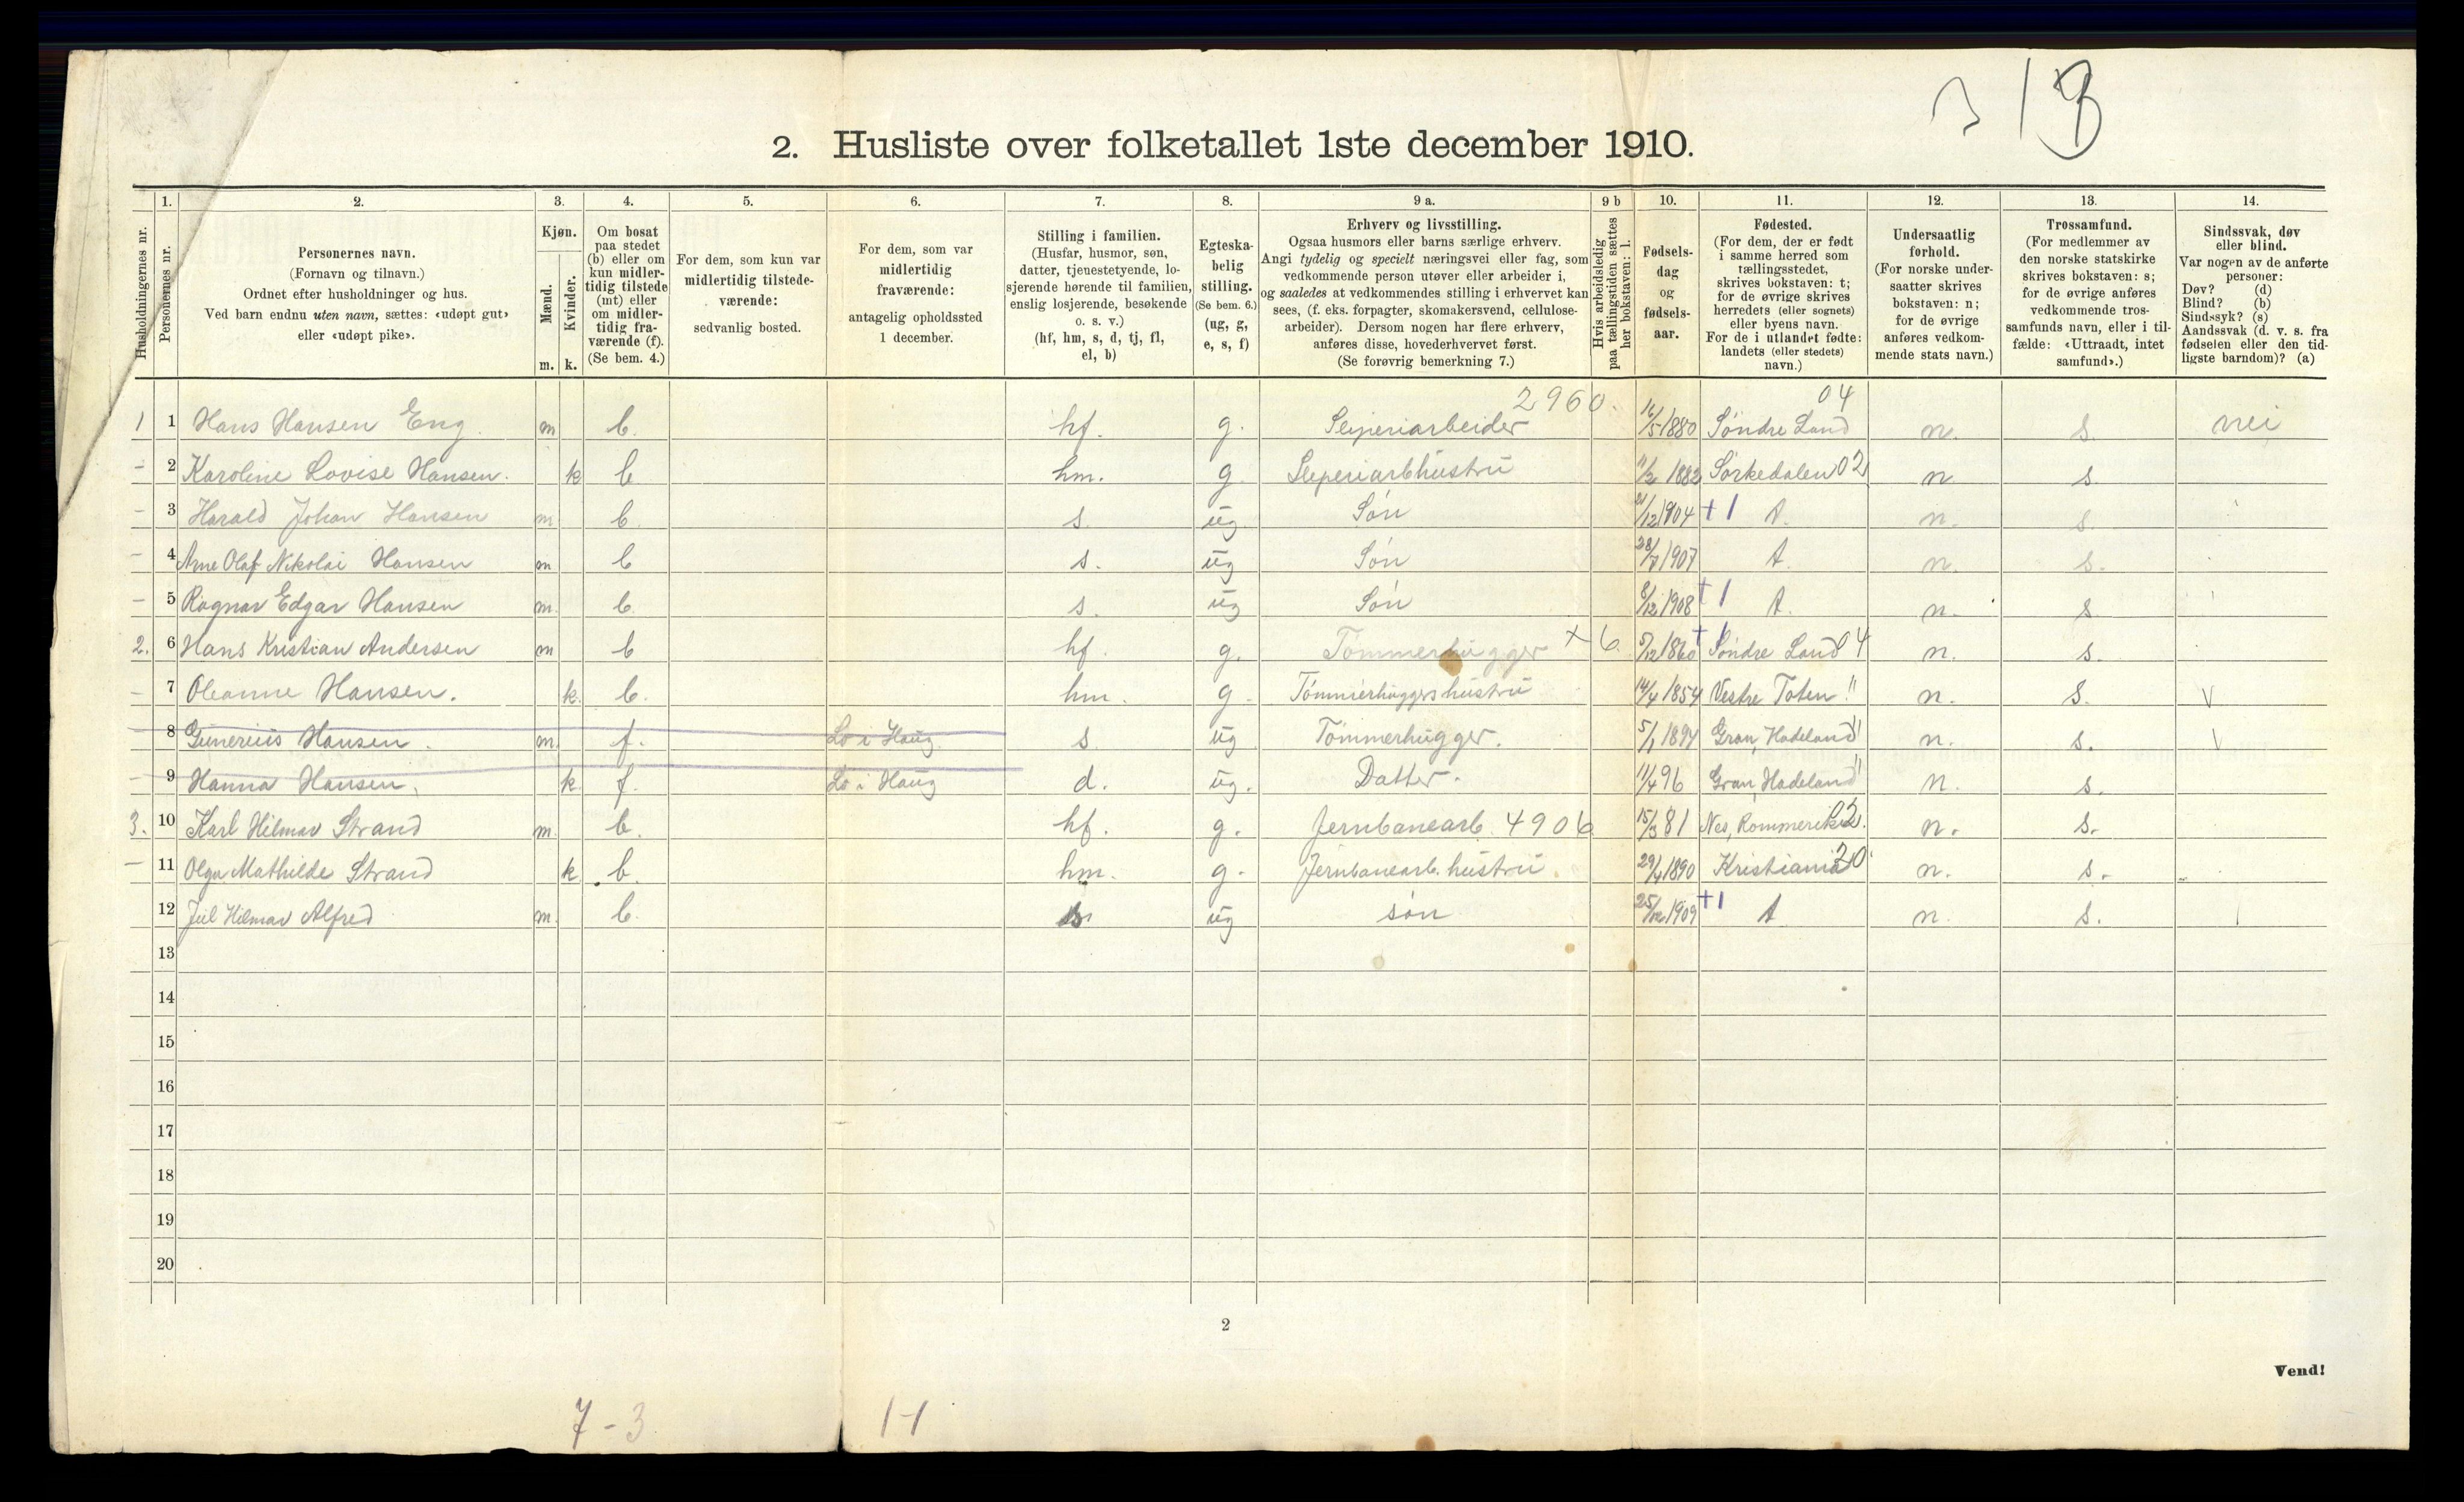 3 18
2. Husliste over folketallet 1ste december 1910.
1. 2. 3. 4. 5. 6. 7. 8. 9 a. 9 b 10. 11. 12. 13. 14.
Husholdningernes nr.
Personernes nr.
Personernes navn.
(Fornavn og tilnavn.)
Ordnet efter husholdninger og hus.
Ved barn endnu uten navn, sættes: «udøpt gut»
eller «udøpt pike».
Kjøn.
Mænd.
Kvinder.
m. k.
Om bosat
paa stedet
(b) eller om
kun midler-
tidig tilstede
(mt) eller
om midler-
tidig fra-
værende (f).
(Se bem. 4.)
For dem, som kun var
midlertidig tilstede-
værende:
sedvanlig bosted.
For dem, som var
midlertidig
fraværende:
antagelig opholdssted
1 december.
Stilling i familien.
(Husfar, husmor, søn,
datter, tjenestetyende, lo-
sjerende hørende til familien,
enslig losjerende, besøkende
o. s. v.)
(hf, hm, s, d, tj, fl,
el, b)
Egteska-
belig
stilling.
(Se bem. 6.)
(ug, g,
e, s, f)
Erhverv og livsstilling.
Ogsaa husmors eller barns særlige erhverv.
Angi tydelig og specielt næringsvei eller fag, som
vedkommende person utøver eller arbeider i,
og saaledes at vedkommendes stilling i erhvervet kan
sees, (f. eks. forpagter, skomakersvend, cellulose-
arbeider). Dersom nogen har flere erhverv,
anføres disse, hovederhvervet først.
(Se forøvrig bemerkning 7.)
Hvis arbeidsledig
paa tællingstiden sættes
her bokstaven: l.
Fødsels-
dag
og
fødsels-
aar.
Fødested.
(For dem, der er født
i samme herred som
tællingsstedet,
skrives bokstaven: t;
for de øvrige skrives
herredets (eller sognets)
eller byens navn.
For de i utlandet fødte:
landets (eller stedets)
navn.)
Undersaatlig
forhold.
(For norske under-
saatter skrives
bokstaven: n;
for de øvrige
anføres vedkom-
mende stats navn.)
Trossamfund.
(For medlemmer av
den norske statskirke
skrives bokstaven: s;
for de øvrige anføres
vedkommende tros-
samfunds navn, eller i til-
fælde: «Uttraadt, intet
samfund».)
Sindssvak, døv
eller blind.
Var nogen av de anførte
personer:
Døv? (d)
Blind? (b)
Sindssyk? (s)
Aandssvak (d. v. s. fra
fødselen eller den tid-
ligste barndom)? (a)
2960. 04
1 1 Hans Hansen Eng. m b. hf. g. Sliperiarbeider 16/5 1880 Søndre Land n. s. nei
- 2 Karoline Lovise Hansen. k b hm. g Sliperiarbhustru 11/2 1882 Sørkedalen 02 n s
- 3 Harald Johan Hansen m b. s. ug Søn 21/12 1904 +1 t. n. s.
- 4 Arne Olaf Nikolai Hansen m b s. ug Søn 28/7 1907 t. n. s.
- 5 Ragnar Edgar Hansen m. b s. ug Søn 8/12 1908 +1 t. n. s
2. 6 Hans Kristian Andersen m b hf. g. Tømmerhugger × 6 5/12 1860 +1 Søndre Land 04 n. s.
- 7 Oleanne Hansen. k. b. hm. g. Tømmerhuggershustru 14/4 1854 Vestre Toten " n. s. V
- 8 Gunerius Hansen. m. f. Lo i Haug s ug Tømmerhugger. 5/1 1894 Gran, Hadeland " n. s. V
- 9 Hanna Hansen. k. f. Lo i Haug d. ug. Datter. 11/4 96 Gran, Hadeland " n. s.
3. 10 Karl Hilmar Strand m. b. hf. g. Jernbanearb. 4906 15/3 81 Nes, Romerike 02. n. s.
- 11 Olga Mathilde Strand k b. hm. g. Jernbanearb. hustru 29/4 1890 Kristiania 20 n. s.
12 Juel Hilmar Alfred m. b. s ug søn 25/12 1909 +1 t n. s.
13
14
15
16
17
18
19
20
2
Vend!
7 - 3 1-1